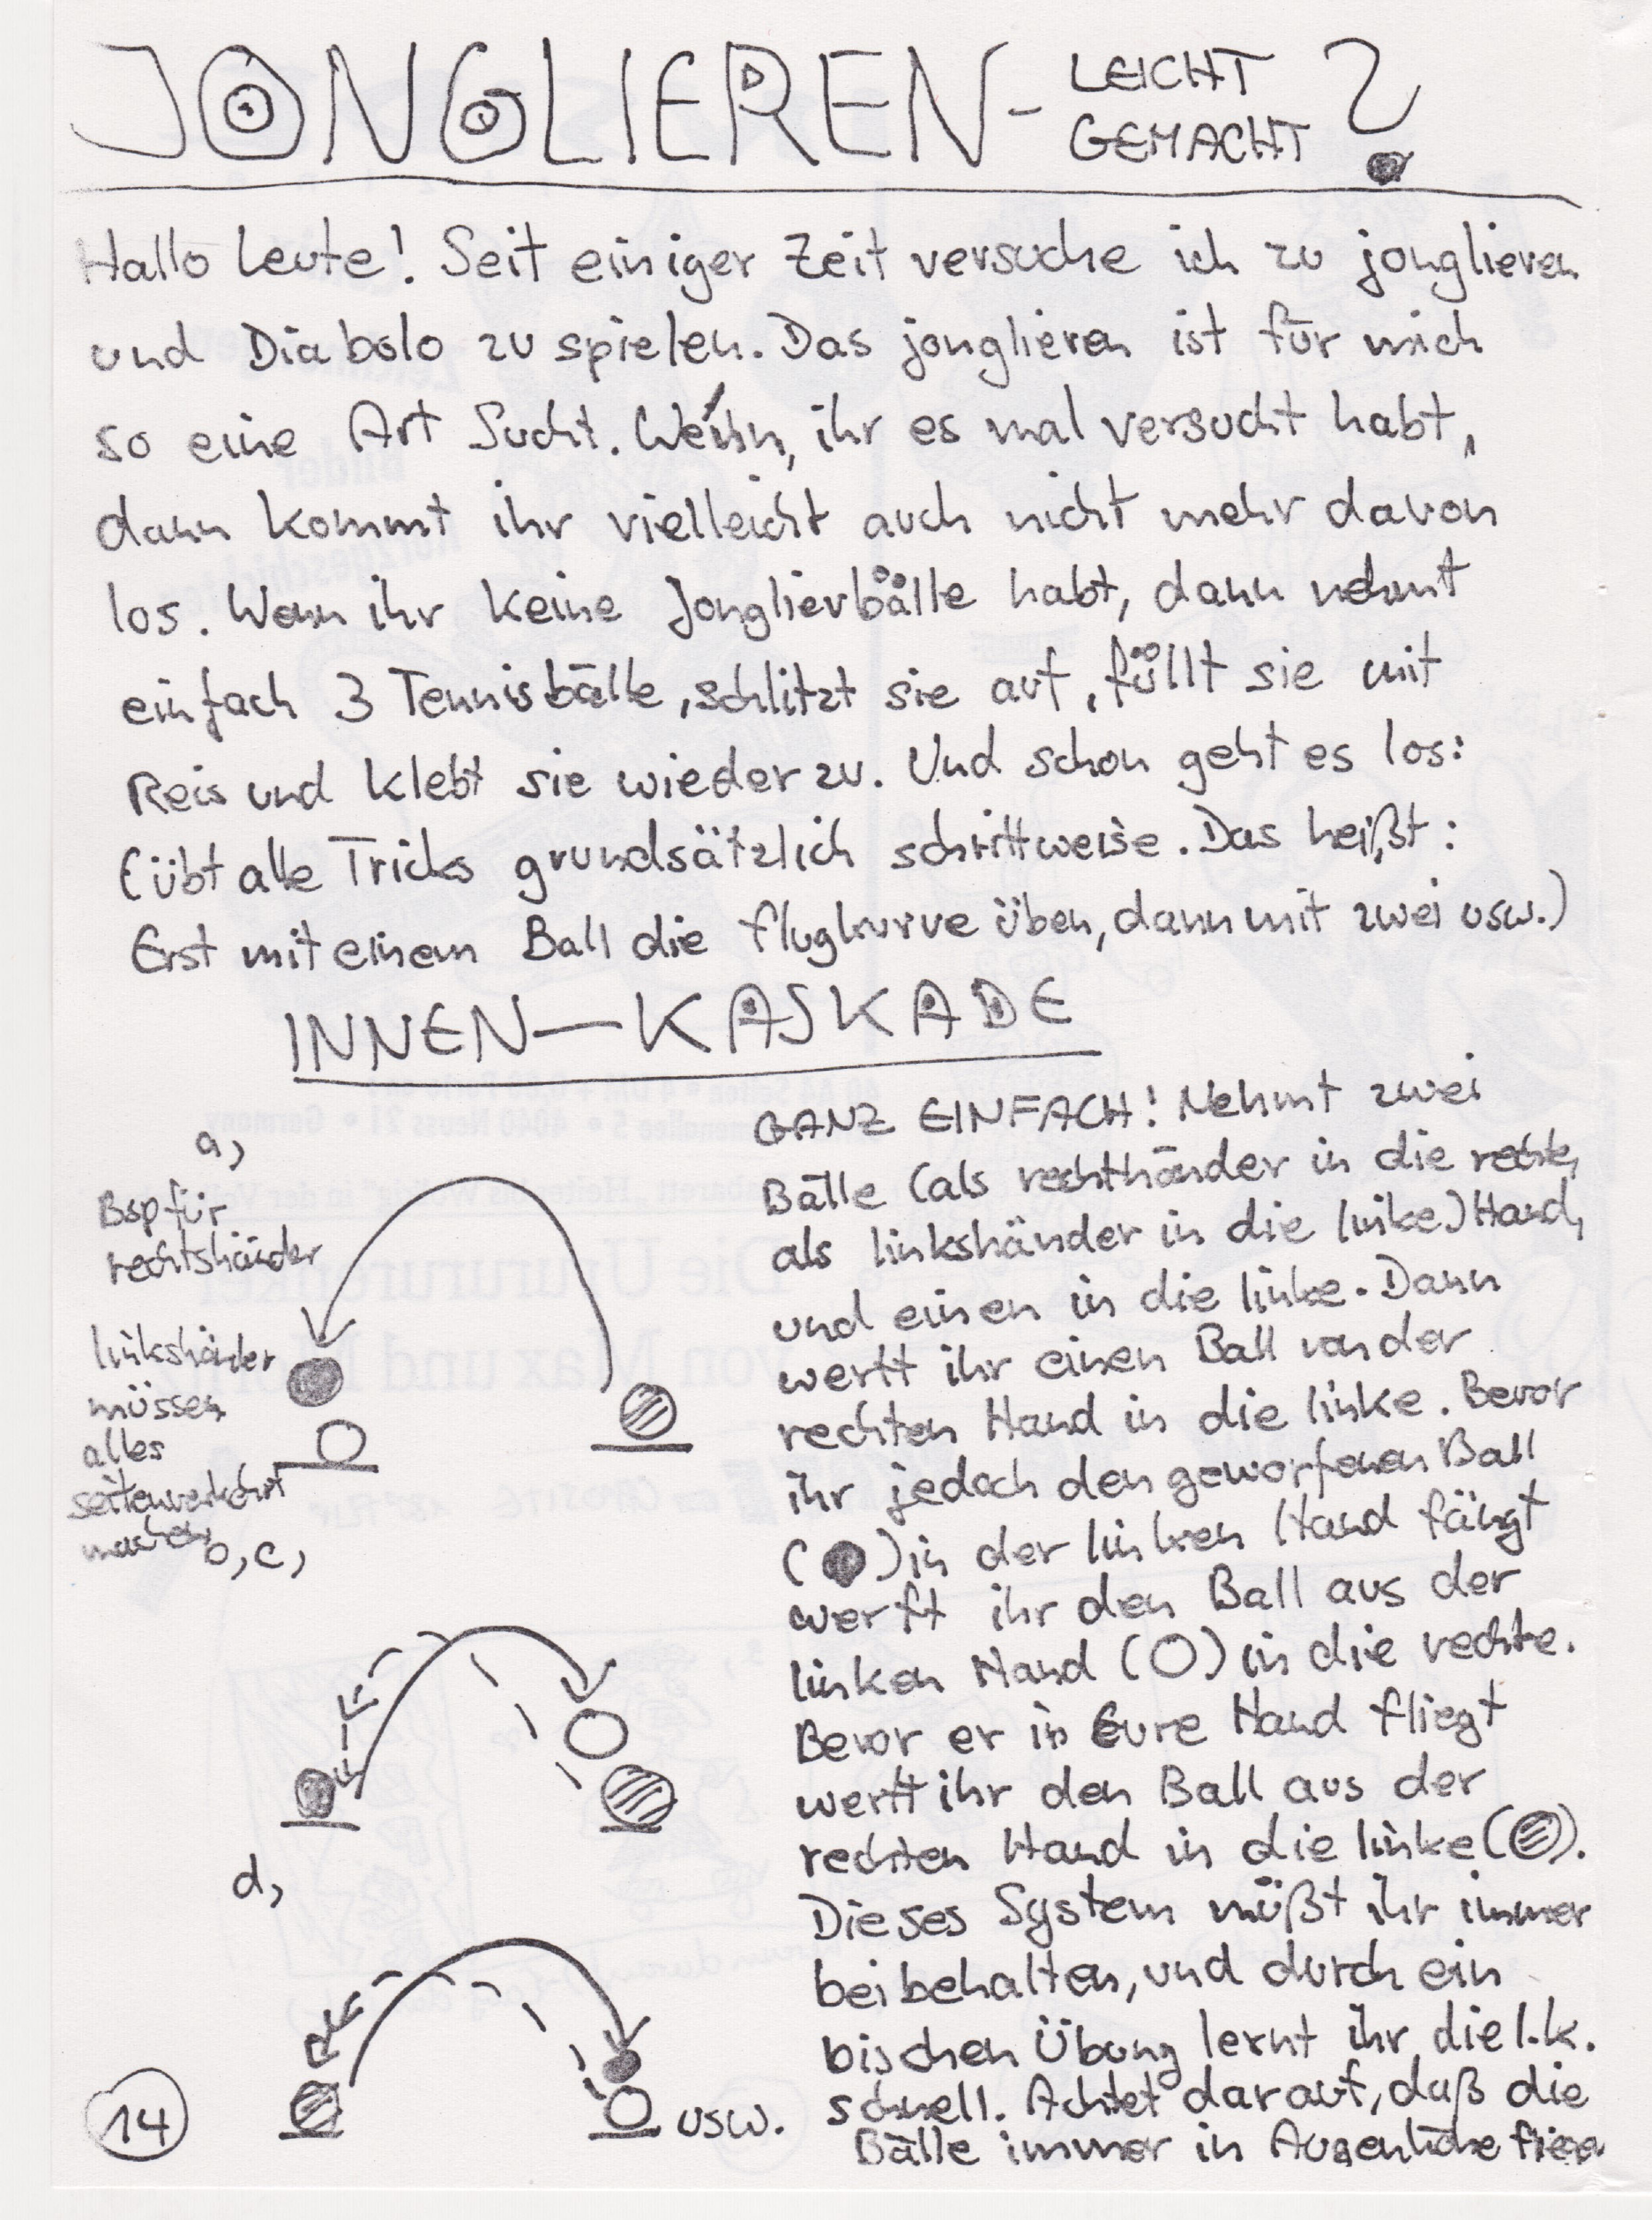 JONGLIEREN- LEICHT GEMACHT ?
Hallo Leute! Seit einiger Zeit versuche ich zu jonglieren
und Diabolo zu spielen. Das jonglieren ist für mich
so eine Art Sucht. Wenn, ihr es mal versucht habt,
dann kommt ihr vielleicht auch nicht mehr davon
los. Wenn ihr keine Jonglierbälle habt, dann nehmt
einfach 3 Tennisbälle, schlitzt sie auf, füllt sie mit
Reis und klebt sie wieder zu. Und schon geht es los:
(übt alle Tricks grundsätzlich schrittweise. Das heißt:
Erst mit einem Ball die flugkurve üben, dann mit zwei usw.)
INNEN-KASKADE
a,
Bsp für
rechtshänder
linkshänder
müssen
alles
seitenverkehrt
machen
b, c,
d,
usw.
GANZ EINFACH! Nehmt zwei
Bälle (als rechthänder in die rechte,
als linkshänder in die linke) Hand,
und einen in die linke. Dann
werft ihr einen Ball von der
rechten Hand in die linke. Bevor
ihr jedoch den geworfenen Ball
(●) in der linken Hand fängt
werft ihr den Ball aus der
linken Hand (○) in die rechte.
Bevor er in Eure Hand fliegt
werft ihr den Ball aus der
rechten Hand in die linke ( ).
Dieses System müßt ihr immer
beibehalten, und durch ein
bischen Übung lernt ihr die I.k.
schnell. Achtet darauf, daß die
Bälle immer in Augenhöhe
14